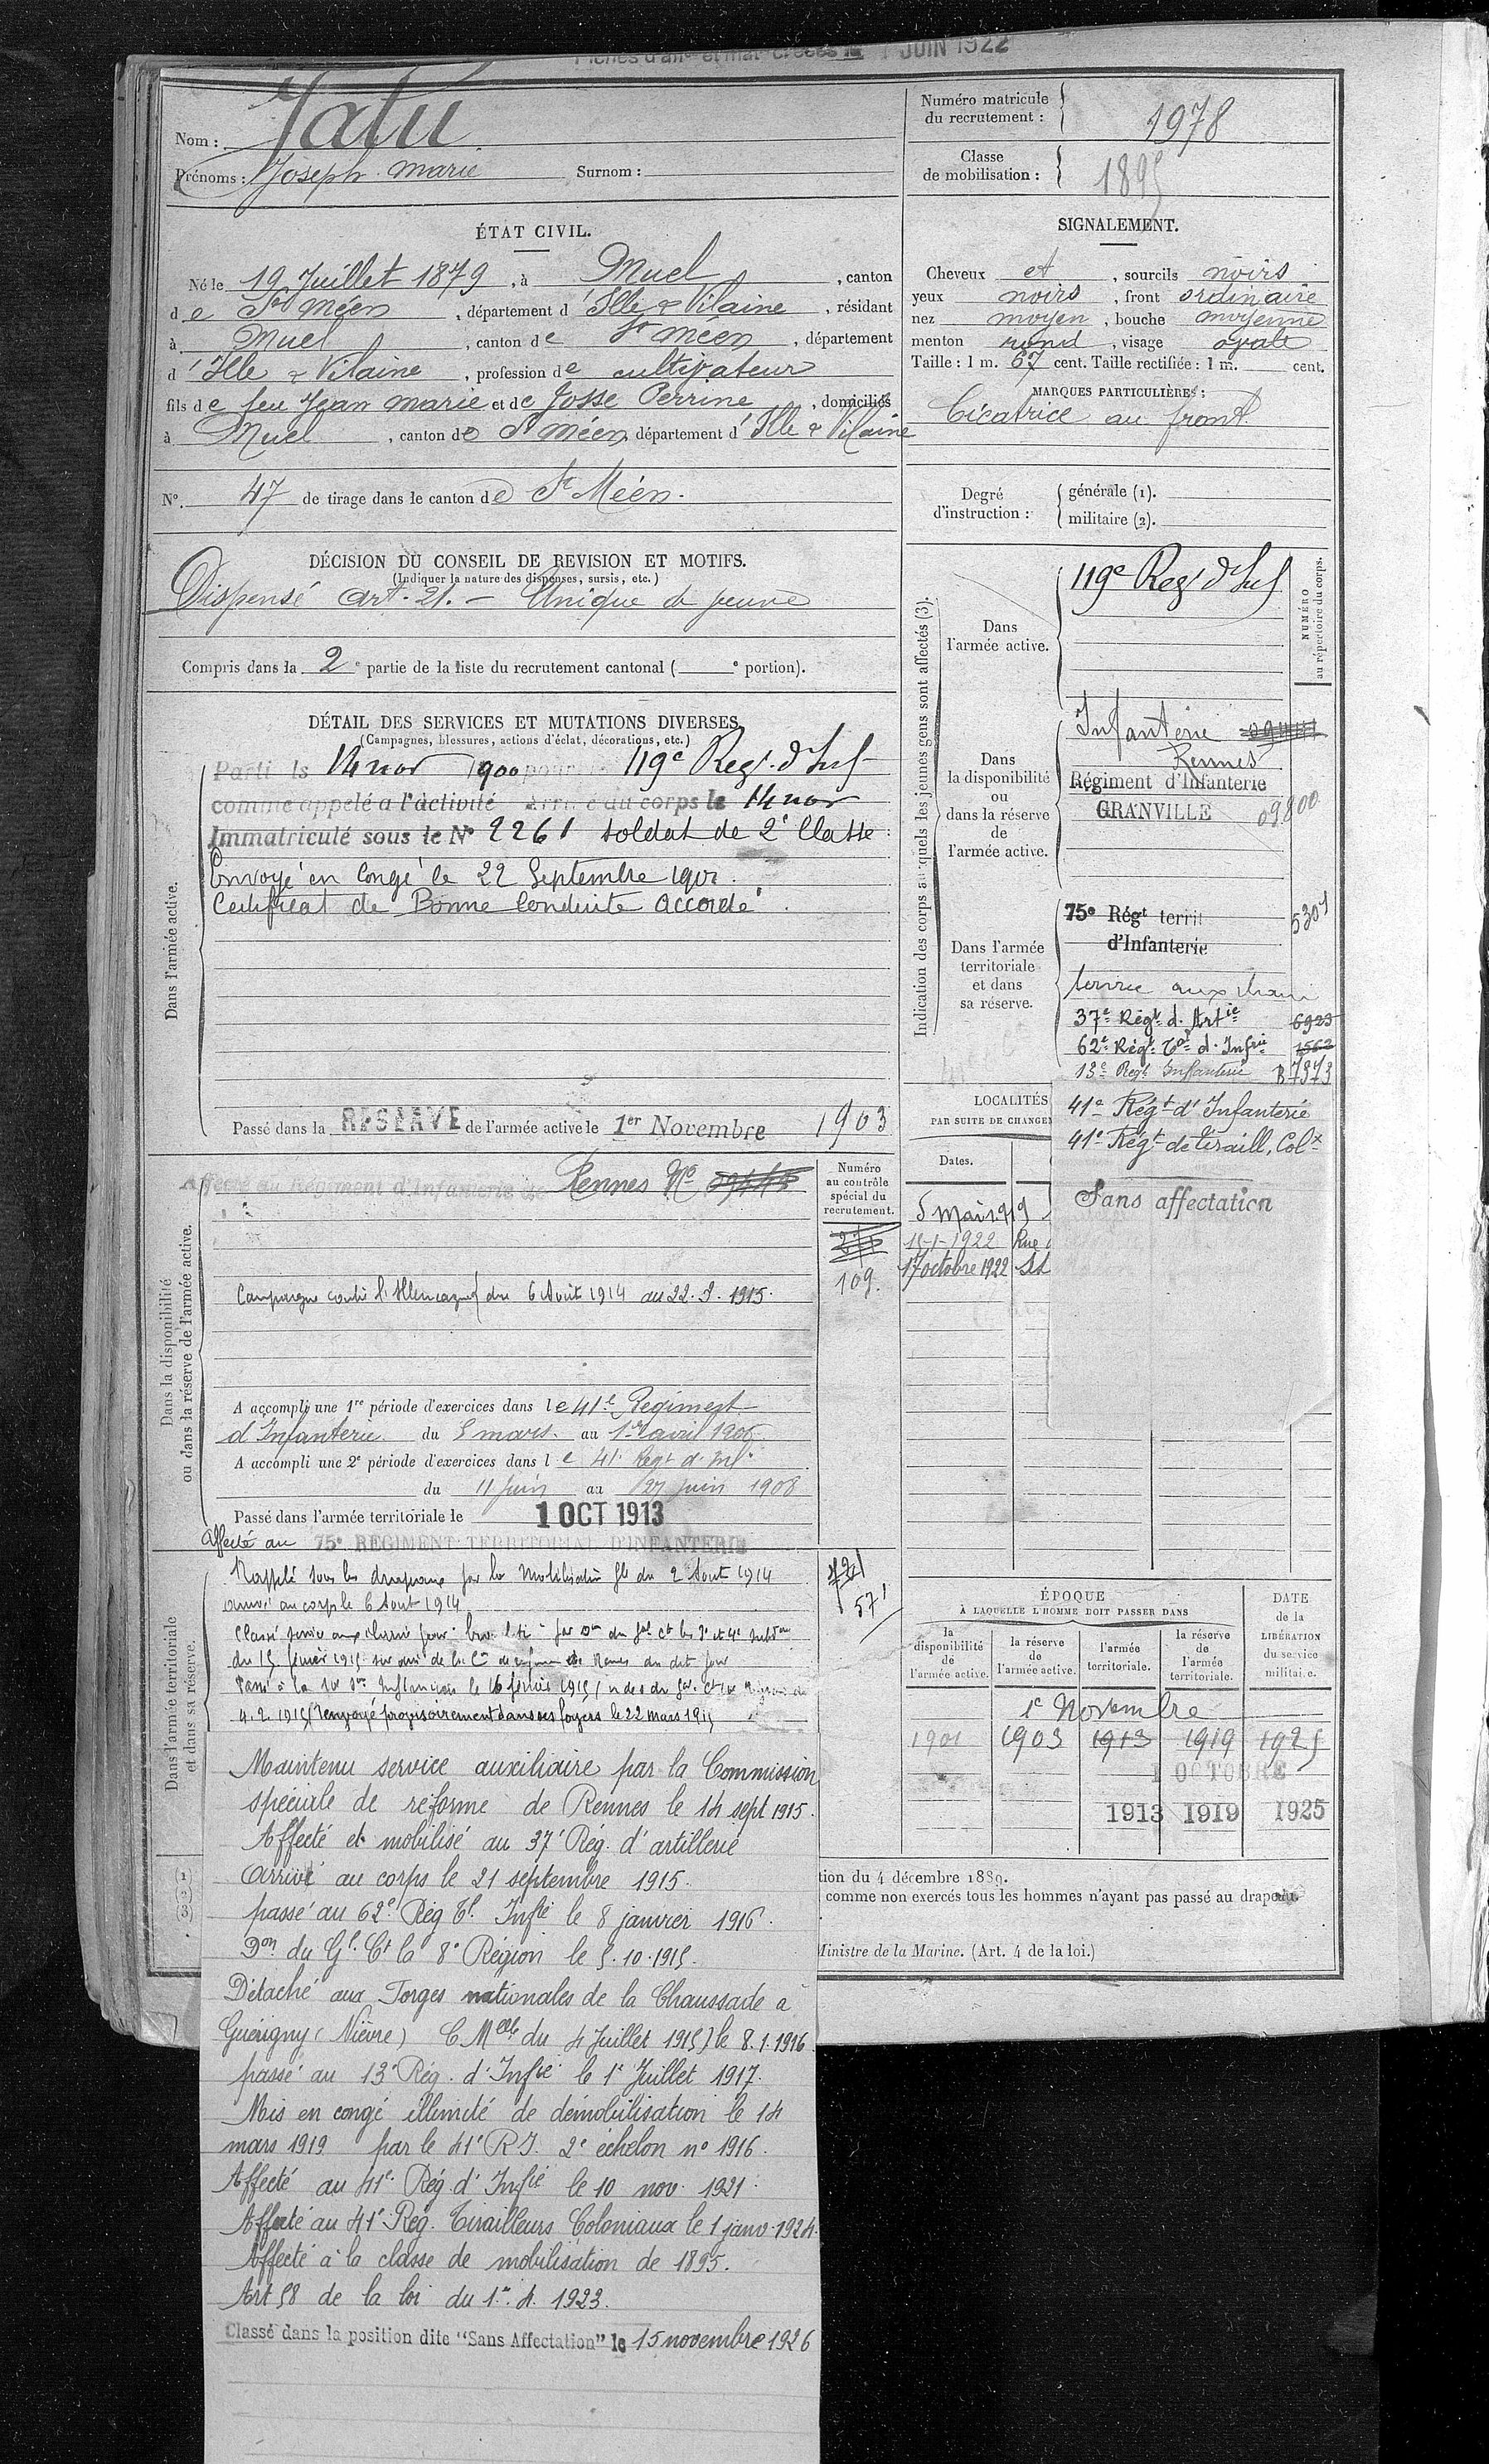 Fiches d'aff. et mat. créées le 1 JUIN 1922
Nom : Jatu
Prénoms : Joseph Marie Surnom :
Numéro matricule du recrutement : 1978
Classe de mobilisation : 1895
ÉTAT CIVIL.
Né le 19 Juillet 1879, à Muel, canton
de St Méen, département d'Ille & Vilaine, résidant
à Muel, canton de St Méen, département
d'Ille & Vilaine, profession de cultivateur
fils de feu Jean Marie et de Josse Perrine, domiciliés
à Muel, canton de St Méen, département d'Ille & Vilaine
N° 47 de tirage dans le canton de St Méen.
SIGNALEMENT.
Cheveux et, sourcils noirs
yeux noirs, front ordinaire
nez moyen, bouche moyenne
menton rond, visage ovale
Taille : 1 m. 67 cent. Taille rectifiée : 1 m. cent.
MARQUES PARTICULIÈRES :
Cicatrice au front.
Degré d'instruction : générale (1).
militaire (2).
DÉCISION DU CONSEIL DE REVISION ET MOTIFS.
(Indiquer la nature des dispenses, sursis, etc.)
Dispensé art. 21. - Unique de veuve
Compris dans la 2e partie de la liste du recrutement cantonal ( e portion).
DÉTAIL DES SERVICES ET MUTATIONS DIVERSES.
(Campagnes, blessures, actions d'éclat, décorations, etc.)
Dans l'armée active.
Parti le 14 nov 1900 pour le 119e Regt. d'Inf
comme appelé à l'activité Arrivé au corps le 14 nov
Immatriculé sous le N° 2261 soldat de 2e Classe
Envoyé en Congé le 22 Septembre 1901.
Certificat de Bonne Conduite Accordé.
Passé dans la RÉSERVE de l'armée active le 1er Novembre 1903
Dans la disponibilité ou dans la réserve de l'armée active.
Affecté au Régiment d'Infanterie de Rennes No
Numéro au contrôle spécial du recrutement.
109.
Campagne contre l'Allemagne du 6 Août 1914 au 22.3.1915.
A accompli une 1re période d'exercices dans le 41e Régiment
d'Infanterie du 5 mars. au 1er avril 1906
A accompli une 2e période d'exercices dans le 41e Regt d'Inf.
du 11 juin au 27 juin 1908
Passé dans l'armée territoriale le 1 OCT 1913
Affecté au 75e RÉGIMENT TERRITORIAL D'INFANTERIE
Dans l'armée territoriale et dans sa réserve.
Rappelé sous les drapeaux par la Mobilisation gle du 2 Août 1914
arrivé au corps le 6 Août 1914
571
du 15 février 1915 sur avis de la Con de réforme de Rennes du dit jour
4.2.1915 Renvoyé provisoirement dans ses foyers le 22 mars 1915
Maintenu service auxiliaire par la Commission
spéciale de réforme de Rennes le 14 sept 1915.
Affecté et mobilisé au 37e Rég. d'artillerie
Arrivé au corps le 21 septembre 1915.
passé au 62e Rég Tl. Infie le 8 janvier 1916.
Don du Gl. Ct la 8e Région le 5.10.1915.
Détaché aux Forges nationales de la Chaussade à
Guérigny (Nièvre) C Melle du 4 Juillet 1915) le 8.1.1916.
passé au 13e Rég. d'Infie le 1e Juillet 1917.
Mis en congé illimité de démobilisation le 14
mars 1919 par le 41e R I. 2e échelon n° 1916.
Affecté au 41e Rég d'Infie le 10 nov. 1921.
Affecté au 41e Rég. Tirailleurs Coloniaux le 1 janv. 1924.
Affecté à la classe de mobilisation de 1895.
Art 58 de la loi du 1er. 4. 1923.
Classé dans la position dite "Sans Affectation" le 15 novembre 1926
Indication des corps auxquels les jeunes gens sont affectés (3).
NUMÉRO au répertoire du corps.
Dans l'armée active.
119e Regt d'Inf
Dans la disponibilité ou dans la réserve de l'armée active.
Infanterie
Rennes
Régiment d'Infanterie
GRANVILLE 09800
Dans l'armée territoriale et dans sa réserve.
75e Régt territ
d'Infanterie
5307
37e Régt d'Artie 6923
62e Régt Tal d'Infrie 1562
13e Regt Infanterie B7373
41e Régt d'Infanterie
41e Régt de Tiraill. Colx
Sans affectation
LOCALITÉS
PAR SUITE DE CHANGE
Dates.
5 Mai 1919
15-1-1922 Rue
17 octobre 1922 St
ÉPOQUE
À LAQUELLE L'HOMME DOIT PASSER DANS
la disponibilité de l'armée active.
la réserve de l'armée active.
l'armée territoriale.
la réserve de l'armée territoriale.
DATE de la LIBÉRATION du service militaire.
1e Novembre
1901 1903 1913 1919 1925
1 OCTOBRE
1913 1919 1925
(1)
(2)
(3)
tion du 4 décembre 1889.
comme non exercés tous les hommes n'ayant pas passé au drapeau.
Ministre de la Marine. (Art. 4 de la loi.)